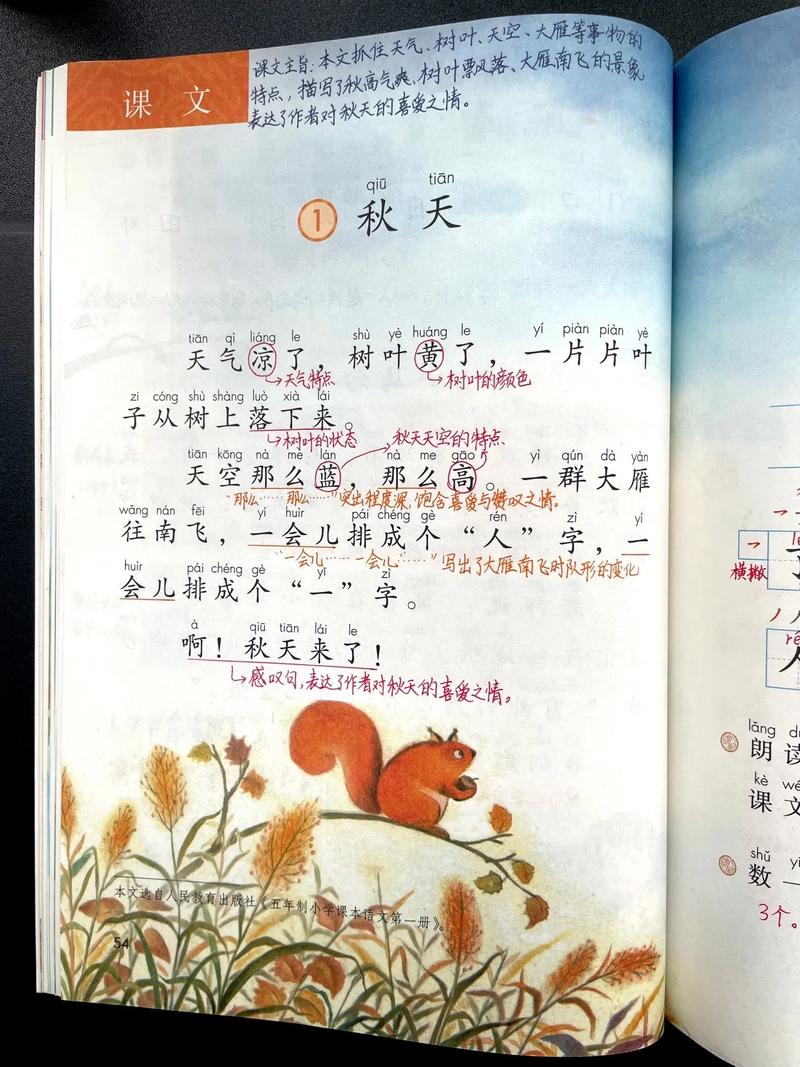 课文
课文主旨：本文抓住天气、树叶、天空、大雁等事物的
特点，描写了秋高气爽、树叶票风落、大雁南飞的景象
表达了作者对秋天的喜爱之情。
qiū tiān
1 秋天
tiān qì liáng le shù yè huáng le yí piàn piàn yè
天气凉了，树叶黄了，一片片叶
天气特点 树叶的颜色
zi cóng shù shàng luò xià lái
子从树上落下来。
树叶的状态 秋天天空的特点
tiān kōng nà me lán nà me gāo yì qún dà yàn
天空那么蓝，那么高。一群大雁
“那么……那么……”突出程度深，饱含喜爱与赞叹之情。
wǎng nán fēi yí huìr pái chéng gè rén zì yí
往南飞，一会儿排成个“人”字，一
“一会儿……一会儿……”写出了大雁南飞时队形的变化
huìr pái chéng gè yī zì
会儿排成个“一”字。
à qiū tiān lái le
啊！秋天来了！
感叹句，表达了作者对秋天的喜爱之情。
本文选自人民教育出版社《五年制小学课本语文第一册》。
54
横撇
rén
人
lǎng
朗读
kè
课文
shǔ
数一
3个。